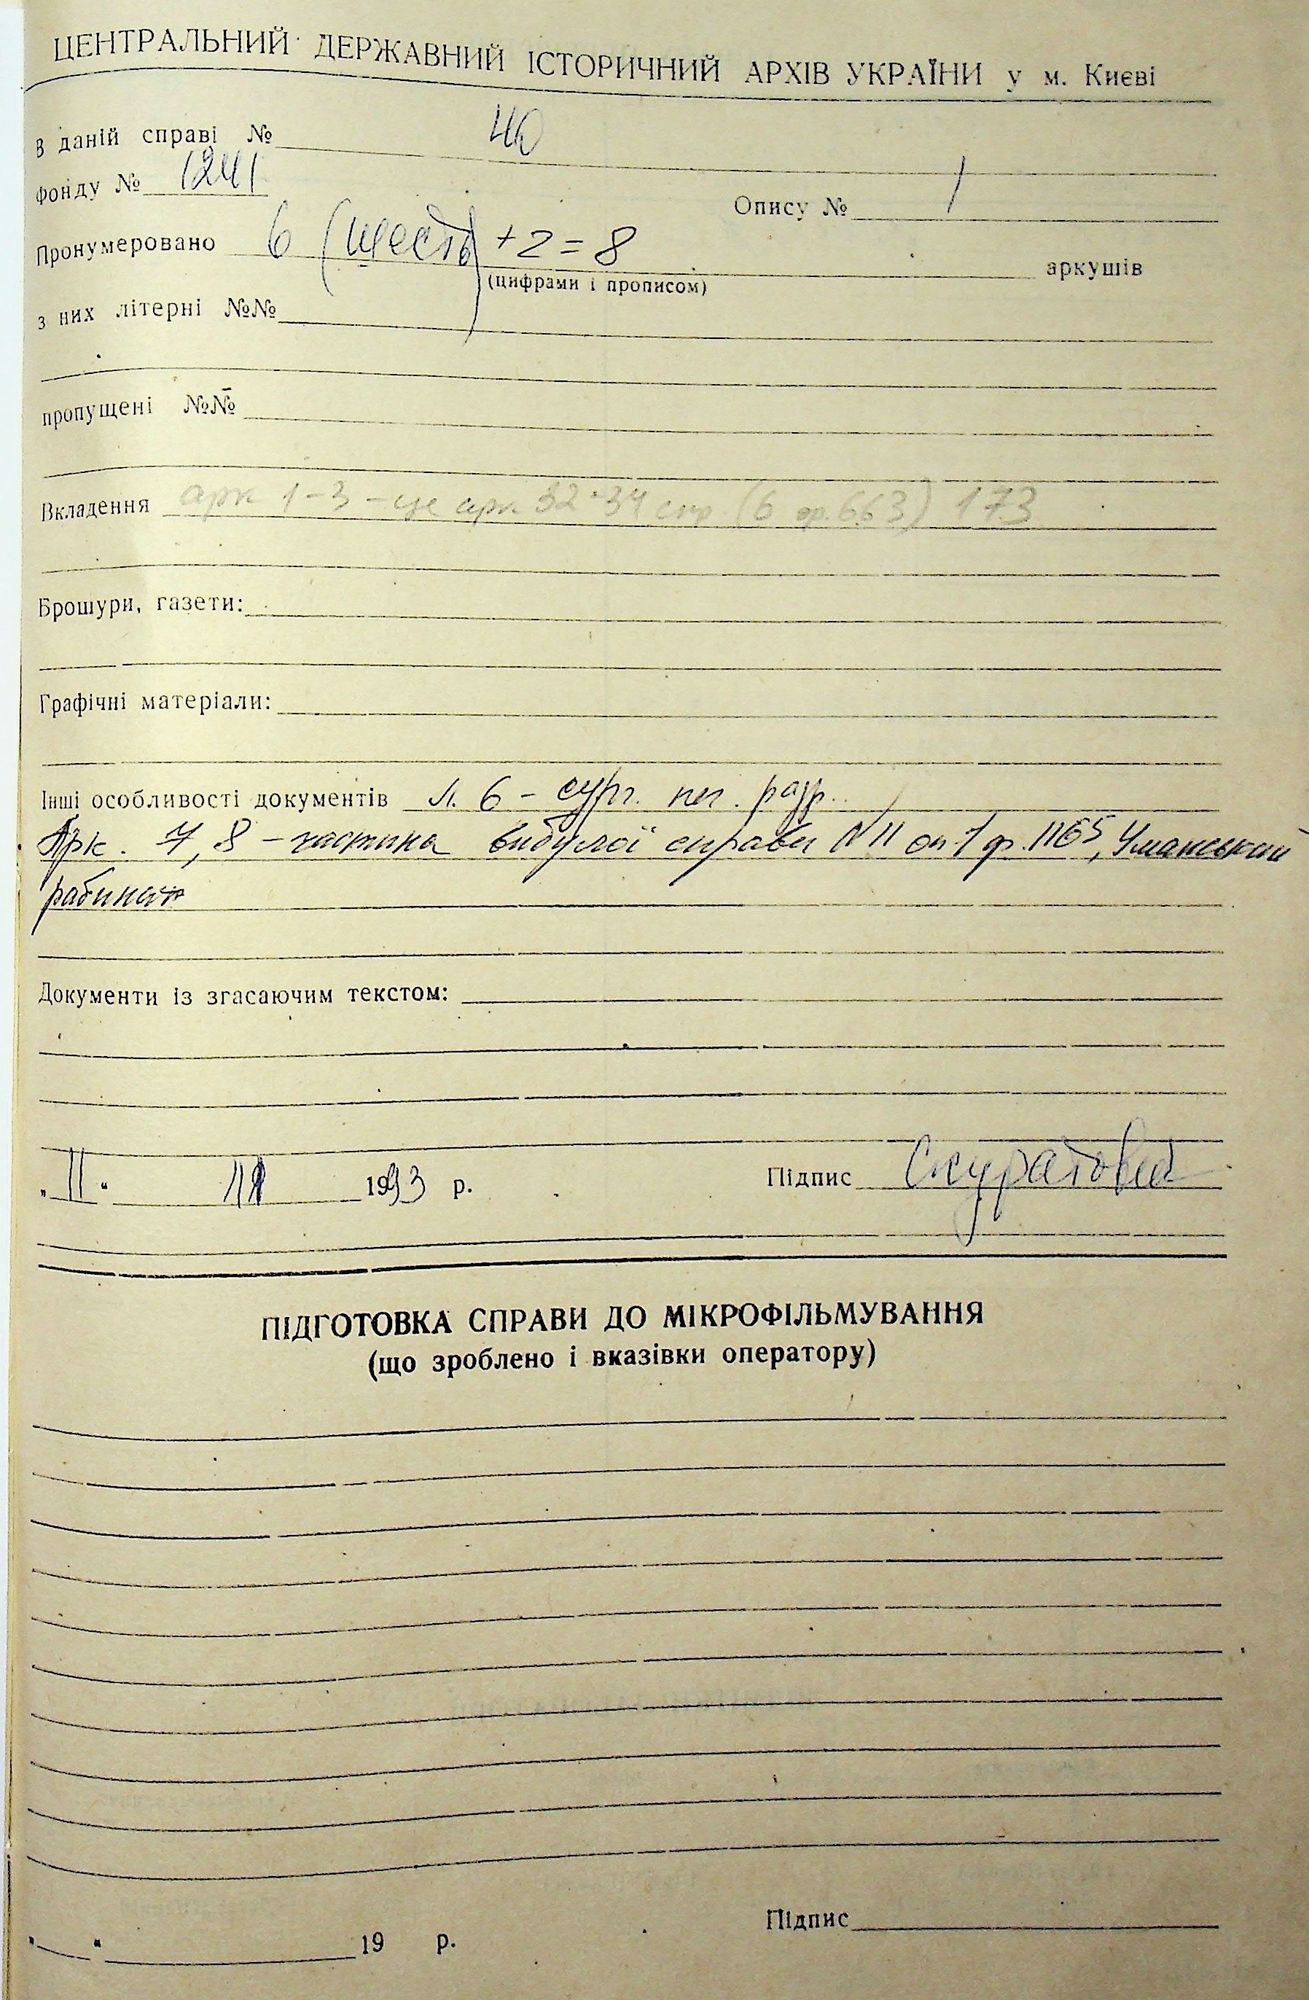 ЦЕНТРАЛЬНИЙ ДЕРЖАВНИЙ ІСТОРИЧНИЙ АРХІВ УКРАЇНИ у м. Києві
В даній справі № 40
фонду № 1241 Опису № 1
Пронумеровано 6 (шесть) +2=8 аркушів
(цифрами і прописом)
з них літерні №№
пропущені №№
Вкладення арк 1-3 - це арк 32-34 спр. (6 ор. 663) 173
Брошури, газети:
Графічні матеріали:
Інші особливості документів л. 6 - сург. печ. разр.
Арк. 7, 8 - частина вибулої справи N 11 оп. 1 ф. 1165, Уманський
рабинат
Документи із згасаючим текстом:
„11“ 1993 р. Підпис
ПІДГОТОВКА СПРАВИ ДО МІКРОФІЛЬМУВАННЯ
(що зроблено і вказівки оператору)
„ “ 19 р. Підпис